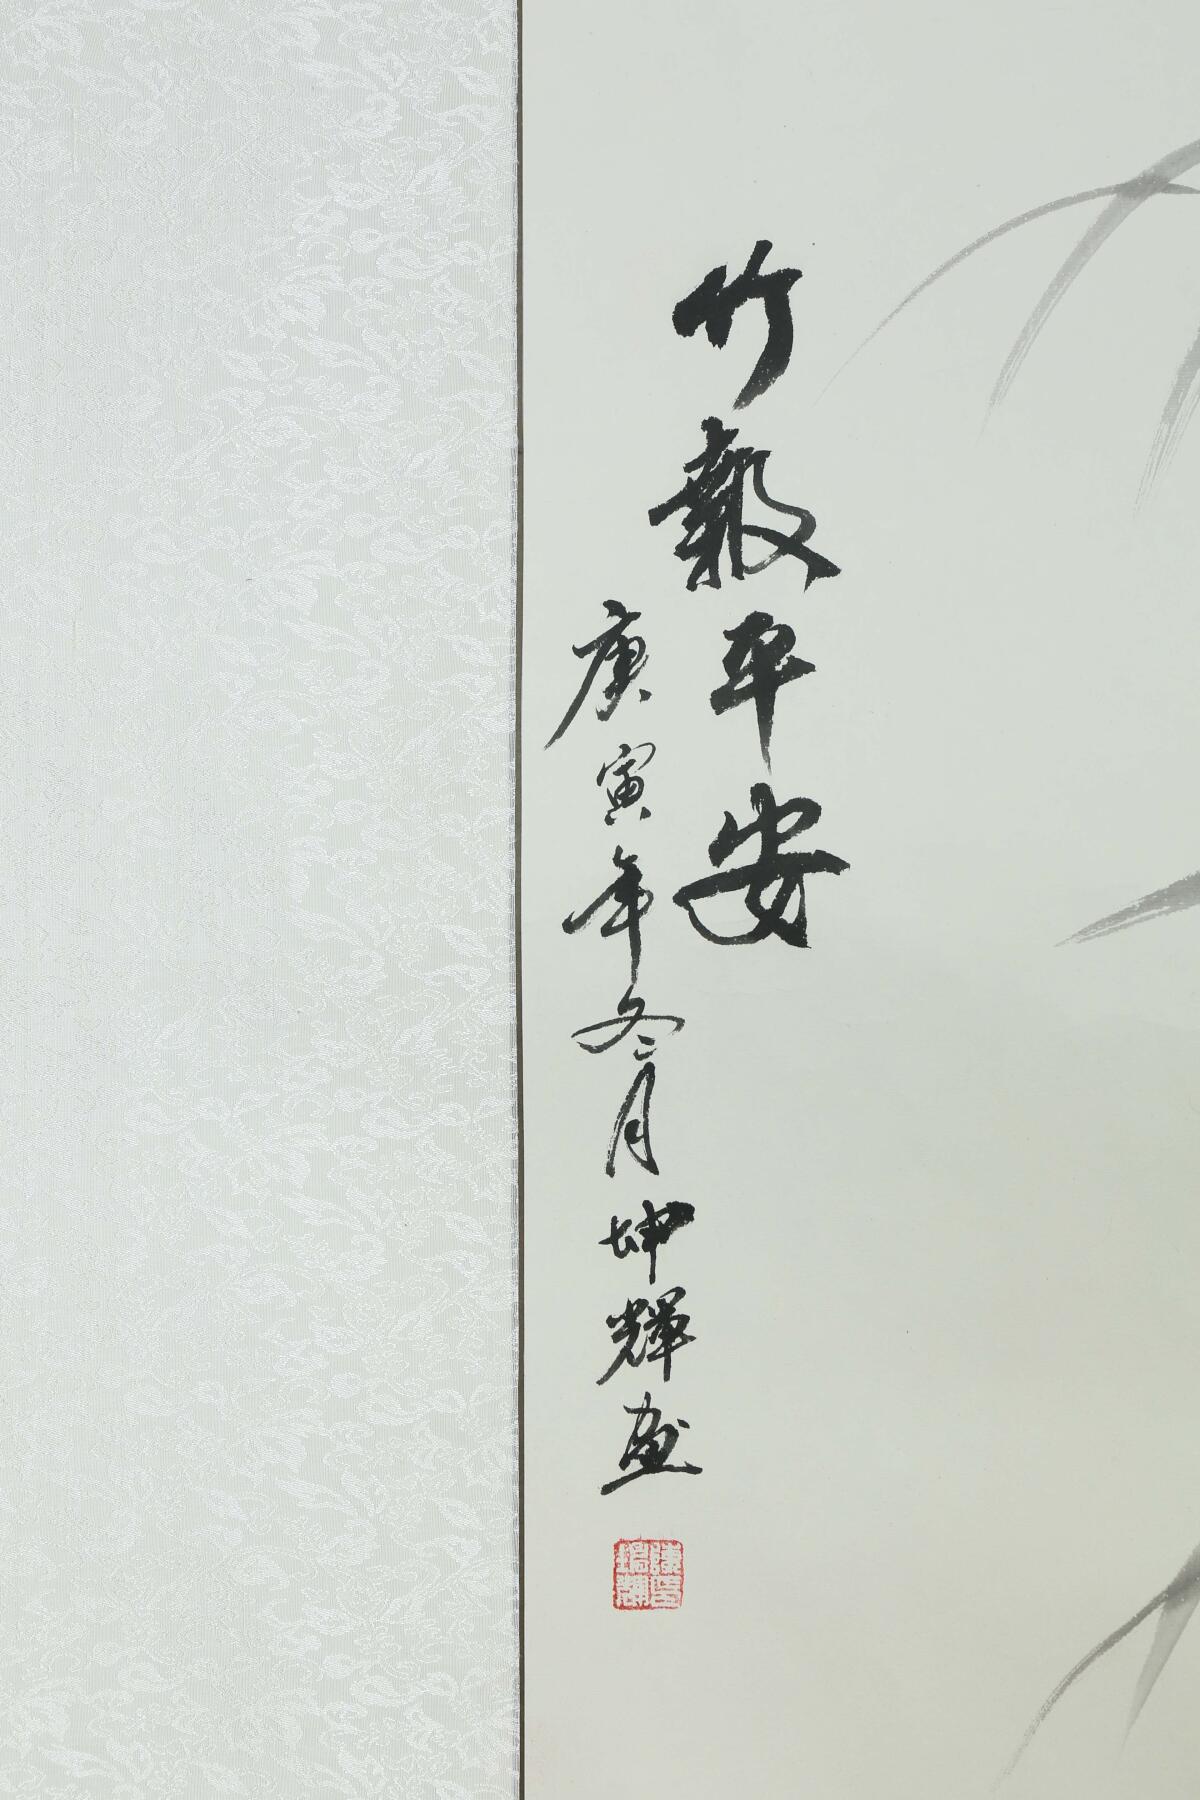 竹報平安
庚寅年冬月坤輝畫